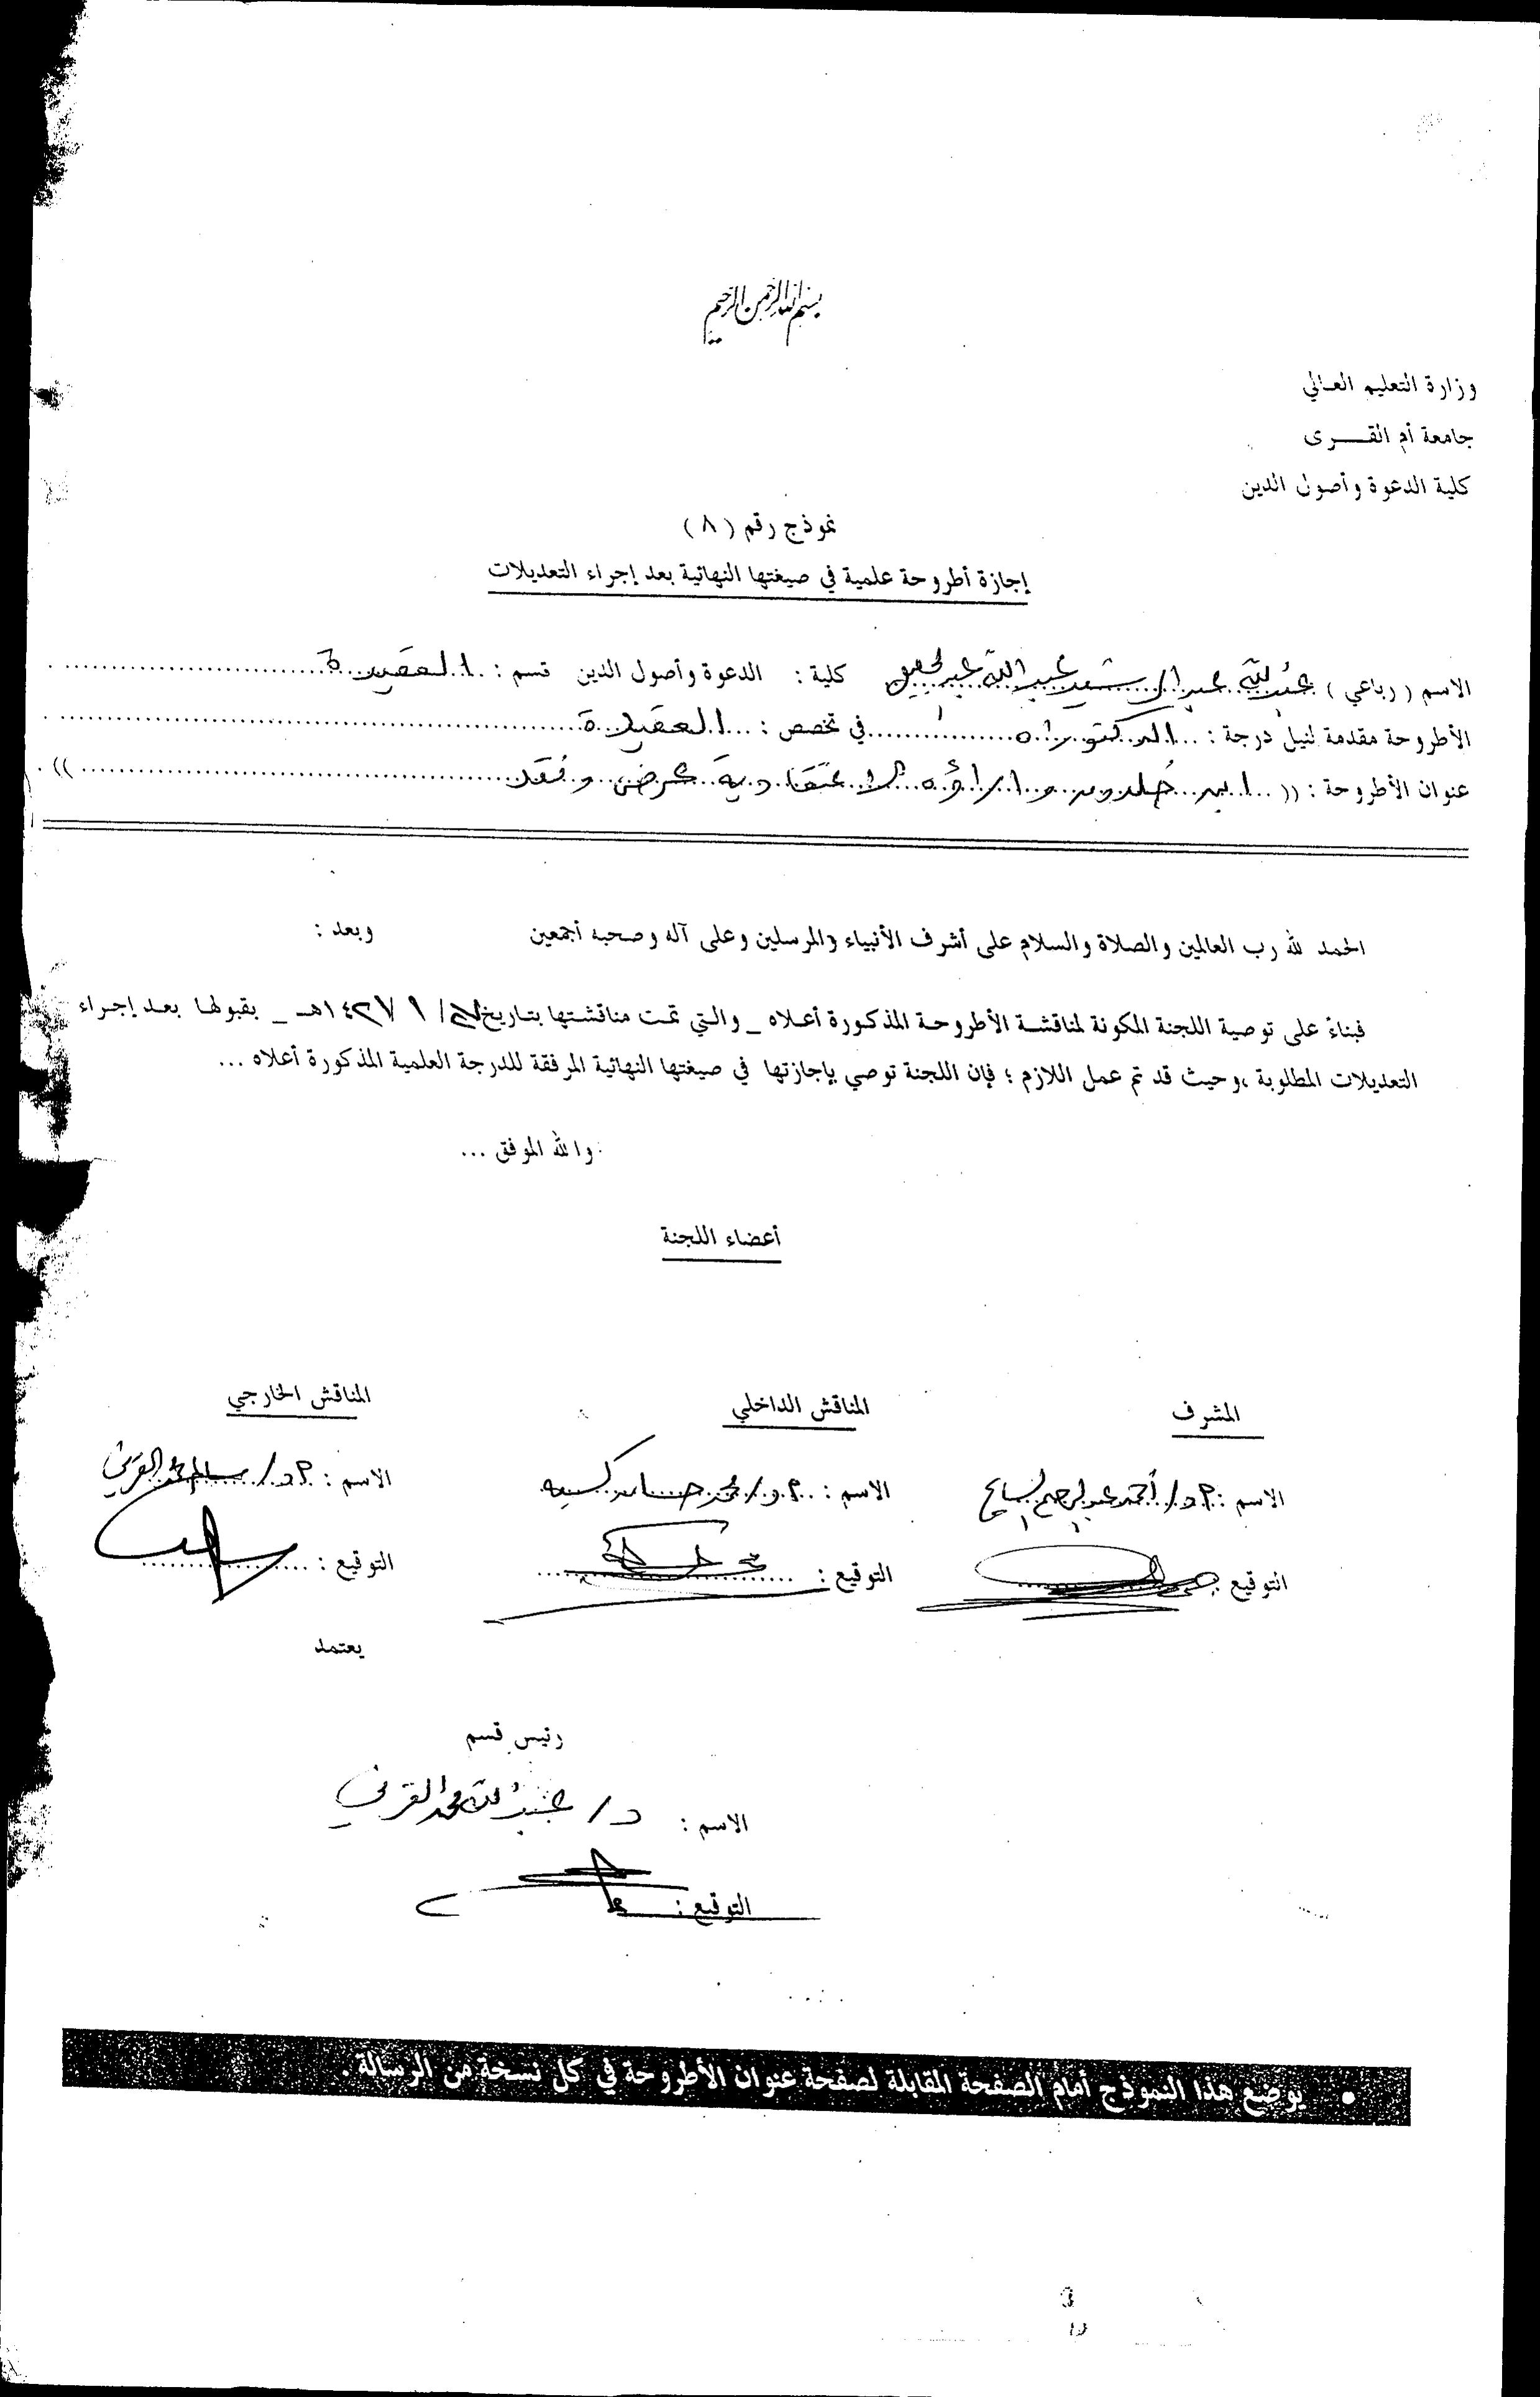 بسم الله الرحمن الرحيم
وزارة التعليم العالي
جامعة أم القـــرى
كلية الدعوة وأصول الدين
نموذج رقم ( ٨ )
إجازة أطروحة علمية في صيغتها النهائية بعد إجراء التعديلات
الاسم ( رباعي ) عبد الله عبد الرشيد عبد الله عبد الجليل كلية : الدعوة وأصول الدين قسم : العقيدة
الأطروحة مقدمة لنيل درجة : الدكتوراه في تخصص : العقيدة
عنوان الأطروحة : (( ابن خلدون و اراؤه الاعتقادية عرض ونقد ))
الحمد لله رب العالمين والصلاة والسلام على أشرف الأنبياء والمرسلين وعلى آله وصحبه أجمعين وبعد :
فبناءً على توصية اللجنة المكونة لمناقشة الأطروحة المذكورة أعلاه _ والتي تمت مناقشتها بتاريخ / ١ / ١٤٢٧هـ _ بقبولها بعد إجراء
التعديلات المطلوبة ،وحيث قد تم عمل اللازم ؛ فإن اللجنة توصي بإجازتها في صيغتها النهائية المرفقة للدرجة العلمية المذكورة أعلاه ...
والله الموفق ...
أعضاء اللجنة
المشرف المناقش الداخلي المناقش الخارجي
الاسم : أ.د/ أحمد عبدالرحيم السايح الاسم : أ.د/ محمد الاسم : أ.د/ القرني
التوقيع : التوقيع : التوقيع :
يعتمد
رئيس قسم
الاسم : د/ عبد الله محمد القرني
التوقيع :
• يوضع هذا النموذج أمام الصفحة المقابلة لصفحة عنوان الأطروحة في كل نسخة من الرسالة .